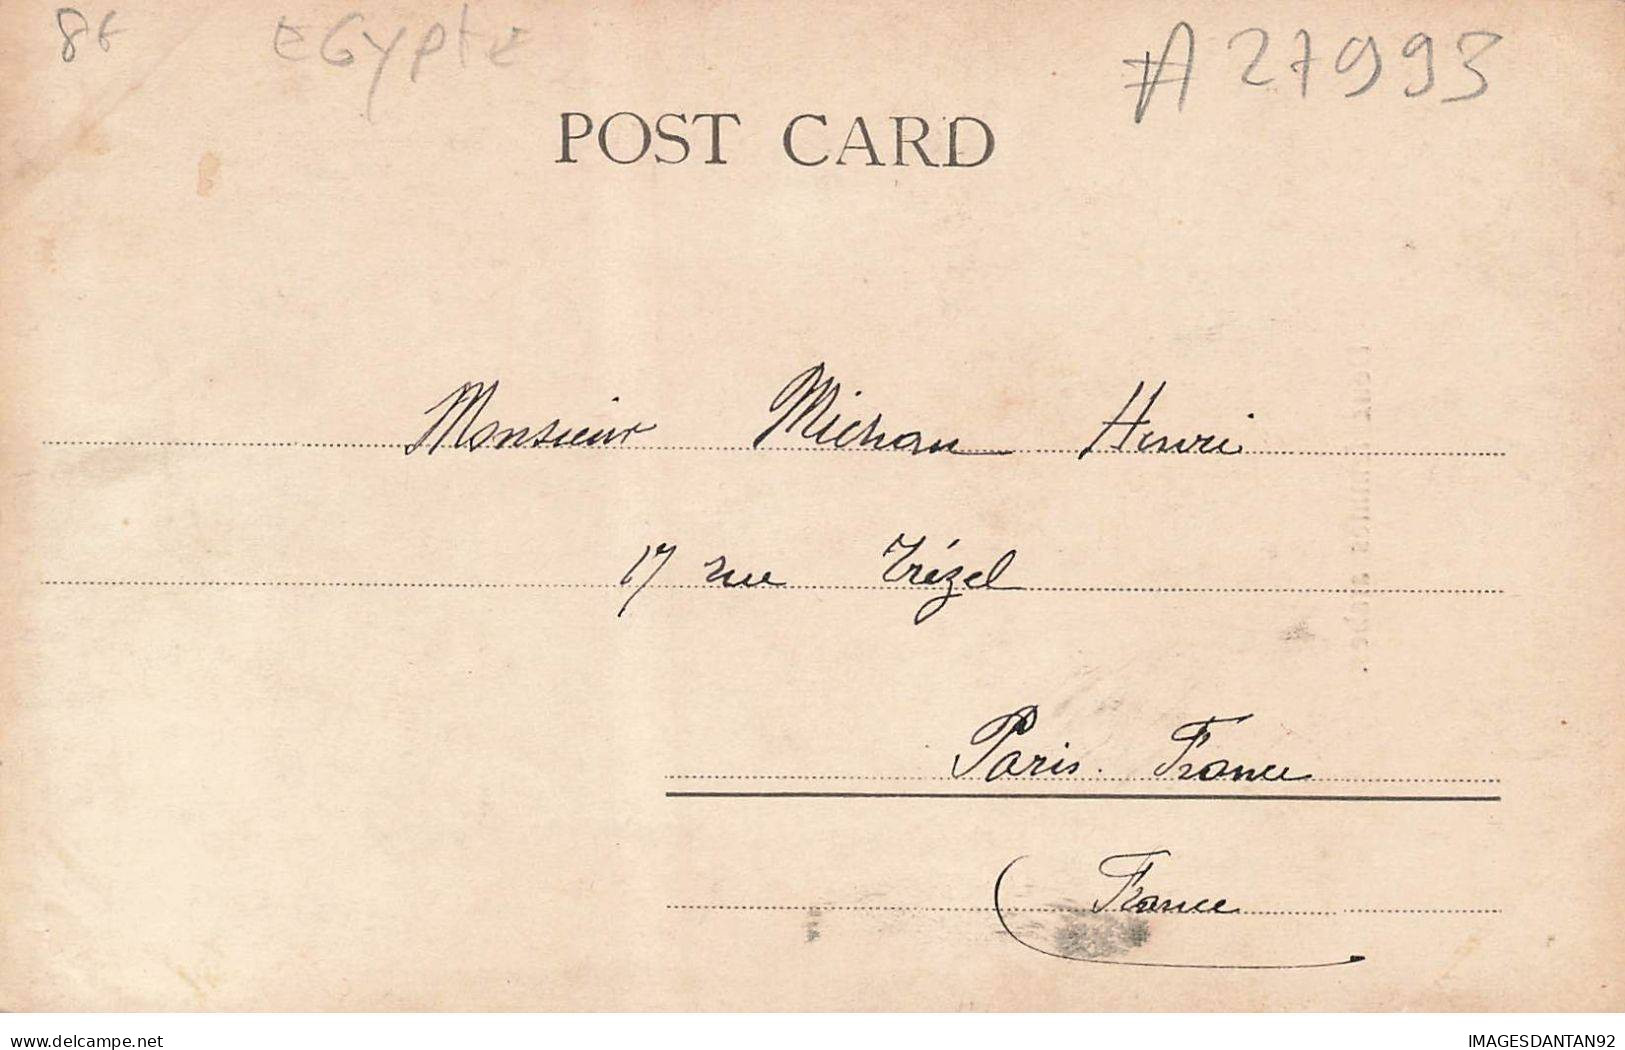 8€ EGypte #A27993
POST CARD
Monsieur Michau Henri
17 rue Trézel
Paris. France
France
www.delcampe.net IMAGESDANTAN92